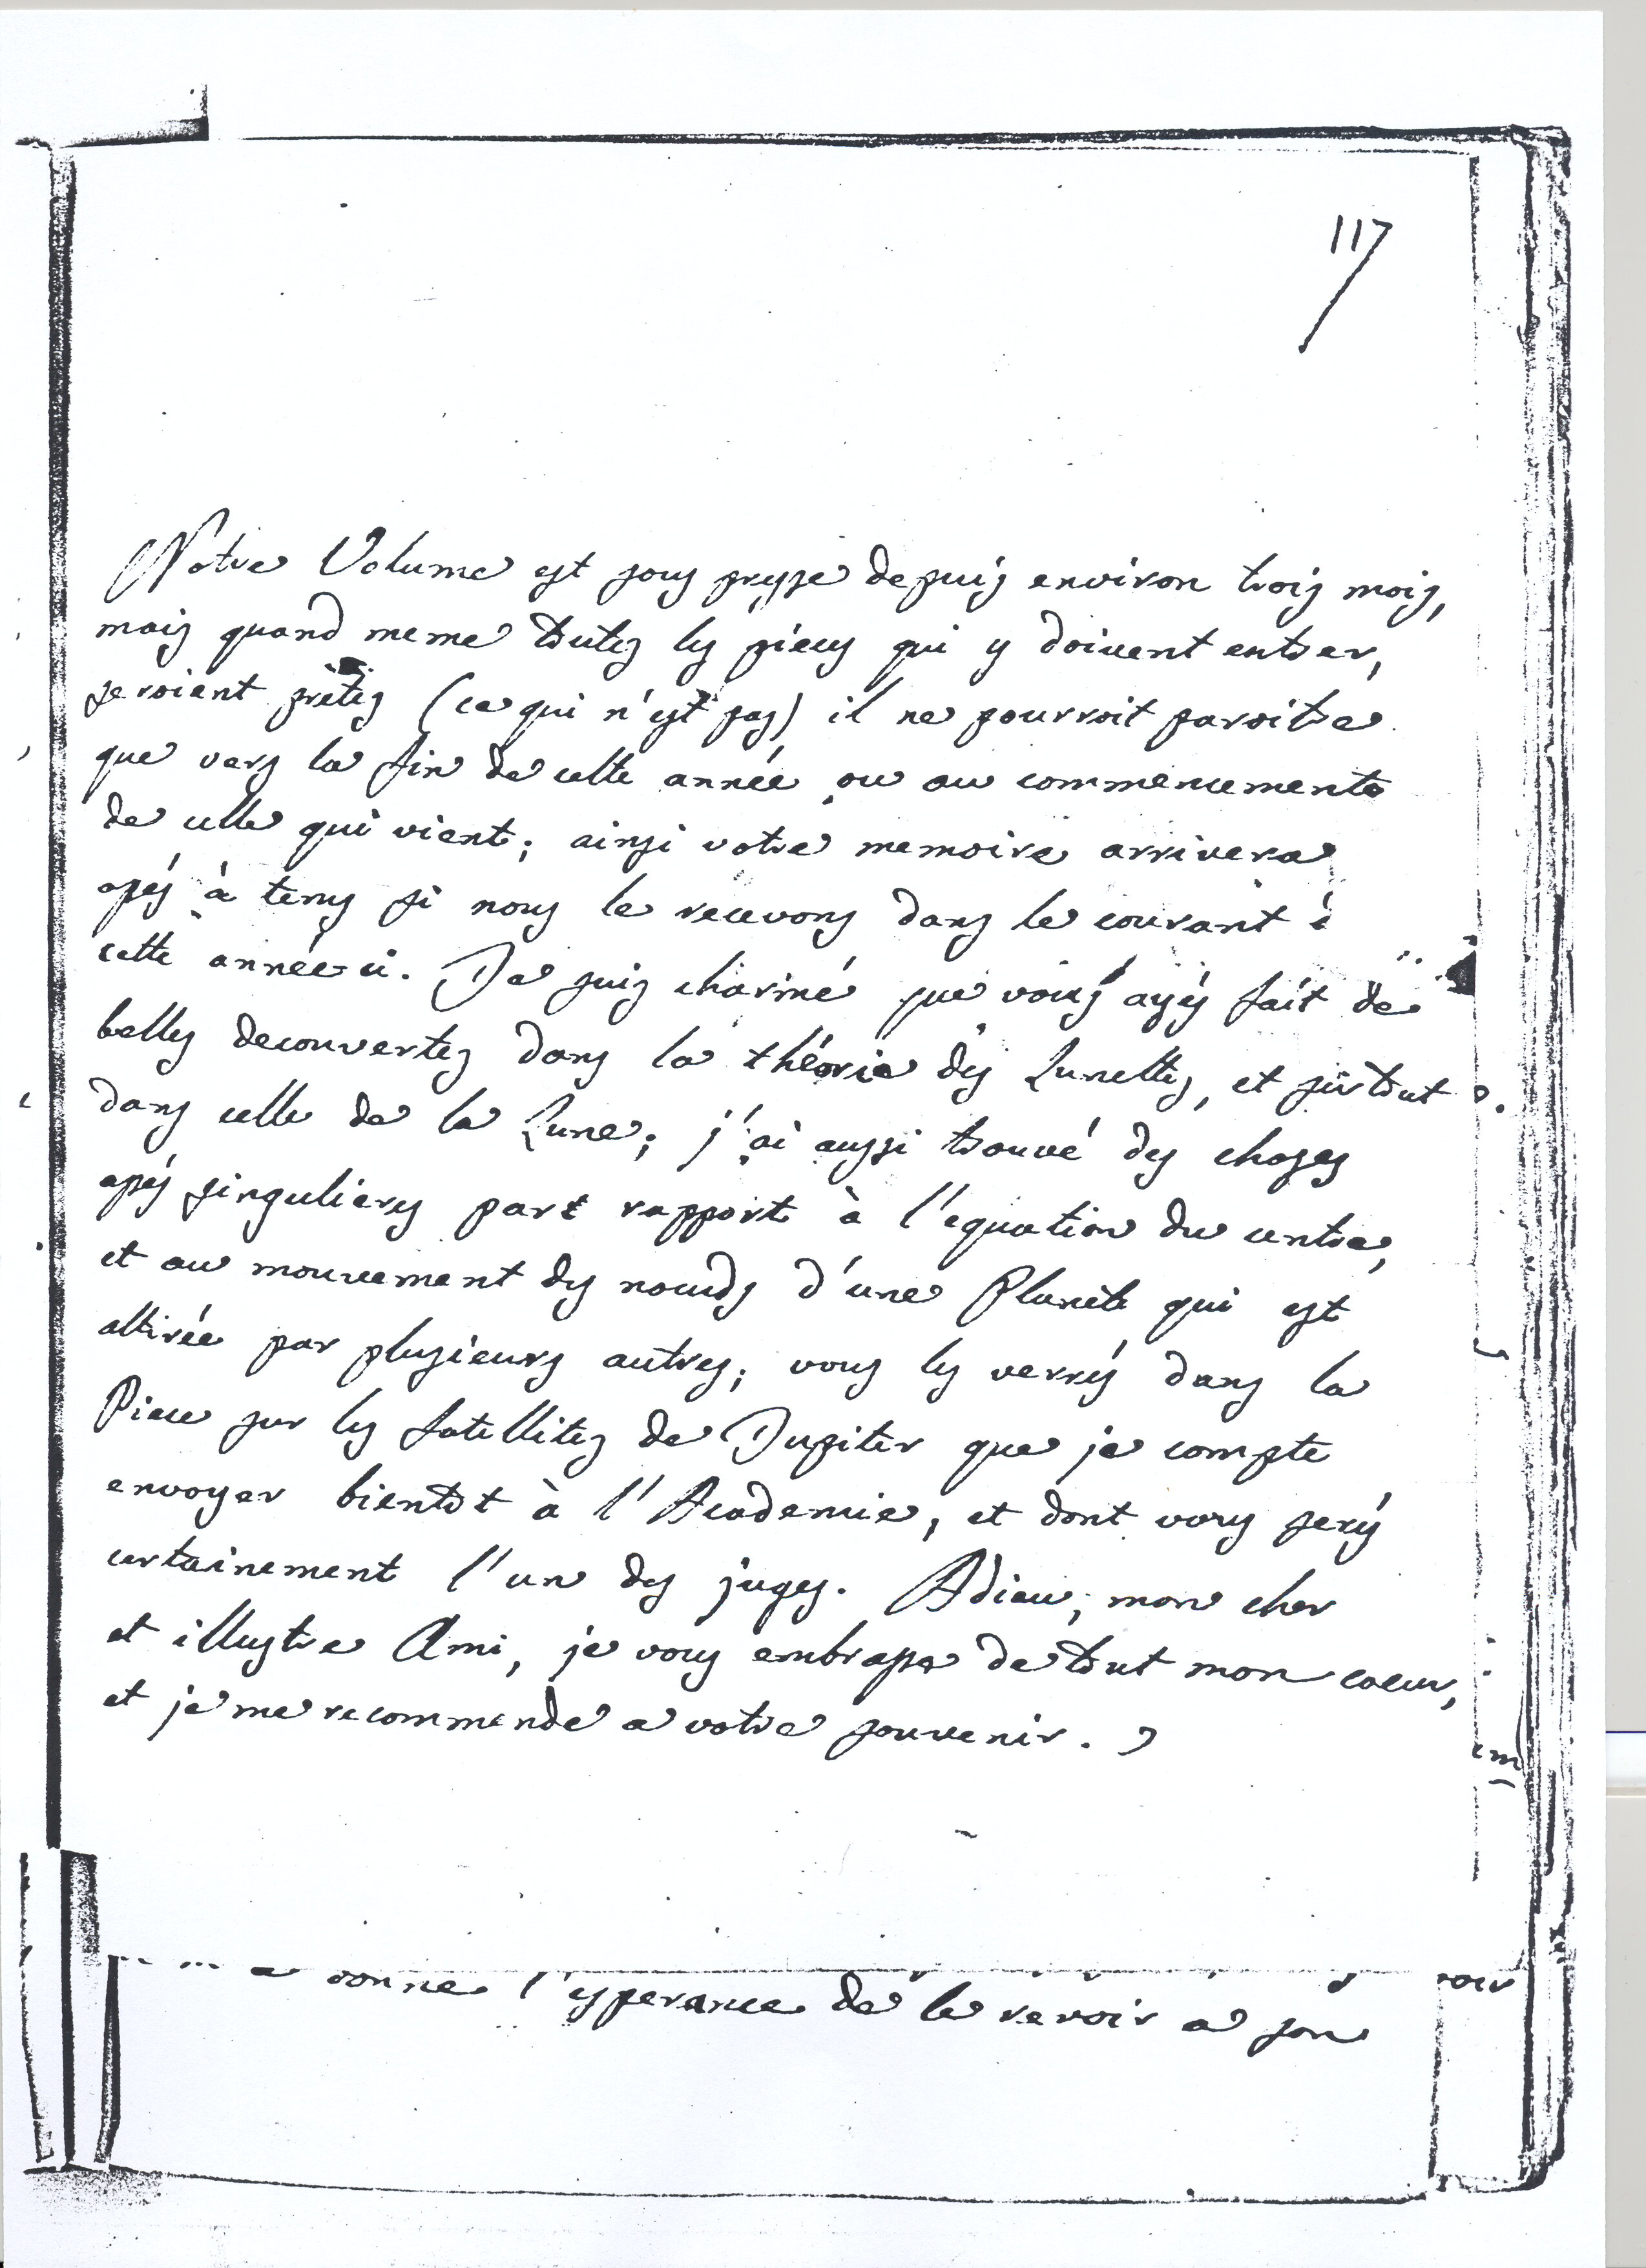 117
Notre Volume est sous presse depuis environ trois mois,
mais quand meme toutes les pieces qui y doivent entrer,
seroient prètes (ce qui n'est pas) il ne pourroit paroitre
que vers la fin de cette année ou au commencement
de celle qui vient; ainsi votre memoire arrivera
assés à tems si nous le recevons dans le courant
cette année-ci. Je suis charmé que vous ayés fait de
belles decouvertes dans la théorie des Lunettes, et surtout
dans celle de la Lune; j'ai aussi trouvé des choses
assés singulieres par rapport à l'equation du centre,
et au mouvement des noeuds d'une Planete qui est
attirée par plusieurs autres; vous les verrés dans la
Piece sur les Satellites de Jupiter que je compte
envoyer bientot à l'Academie, et dont vous serés
certainement l'un des juges. Adieu, mon cher
et illustre Ami, je vous embrasse de tout mon coeur,
et je me recommende a votre souvenir.
donne l'esperance de le revoir a son